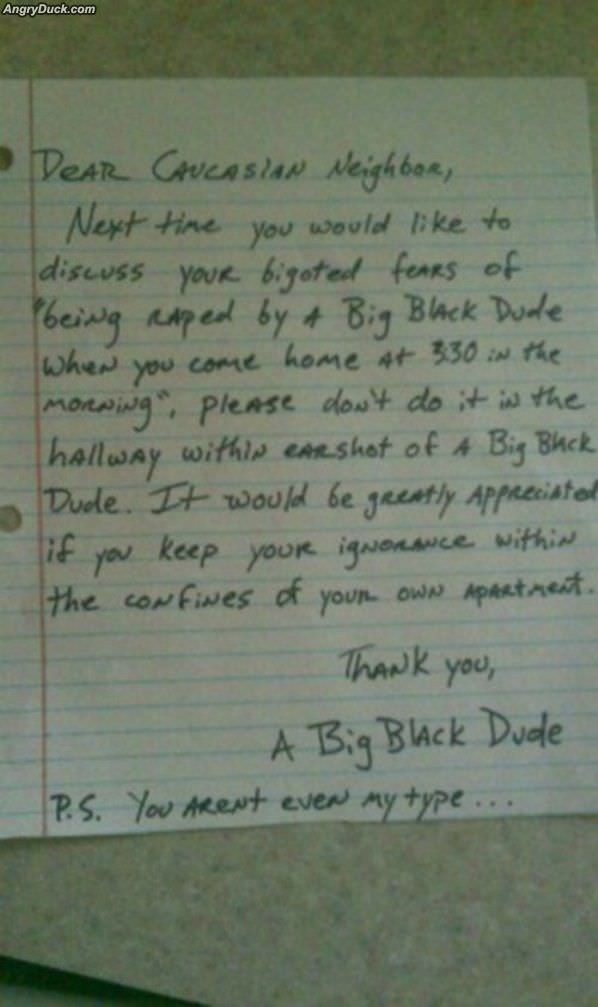 AngryDuck.com
Dear Caucasian Neighbor,
Next time you would like to
discuss your bigoted fears of
"being raped by a Big Black Dude
when you come home at 3:30 in the
morning", please don't do it in the
hallway within earshot of a Big Black
Dude. It would be greatly appreciated
if you keep your ignorance within
the confines of your own apartment.
Thank you,
A Big Black Dude
P.S. You arent even my type...